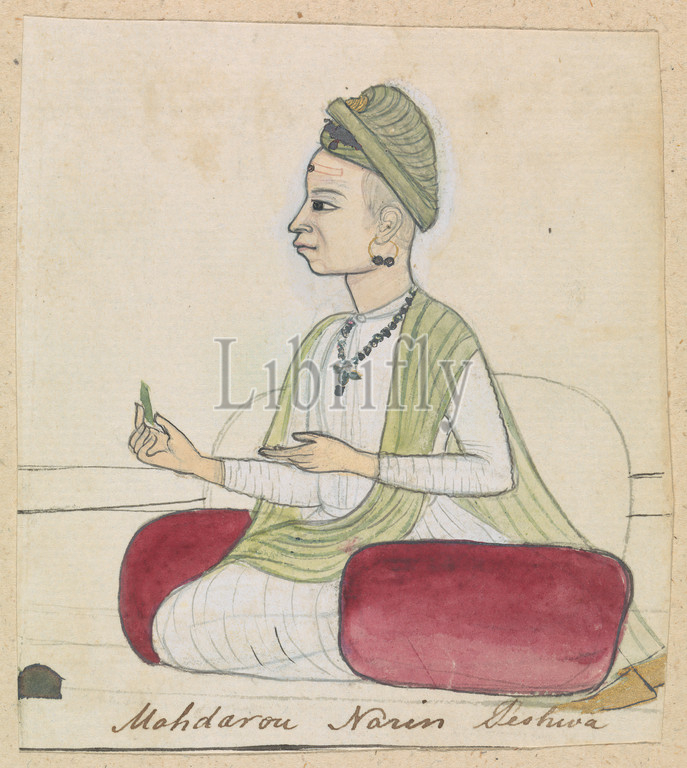 Librifly
Mahdarou Narin Peshwa